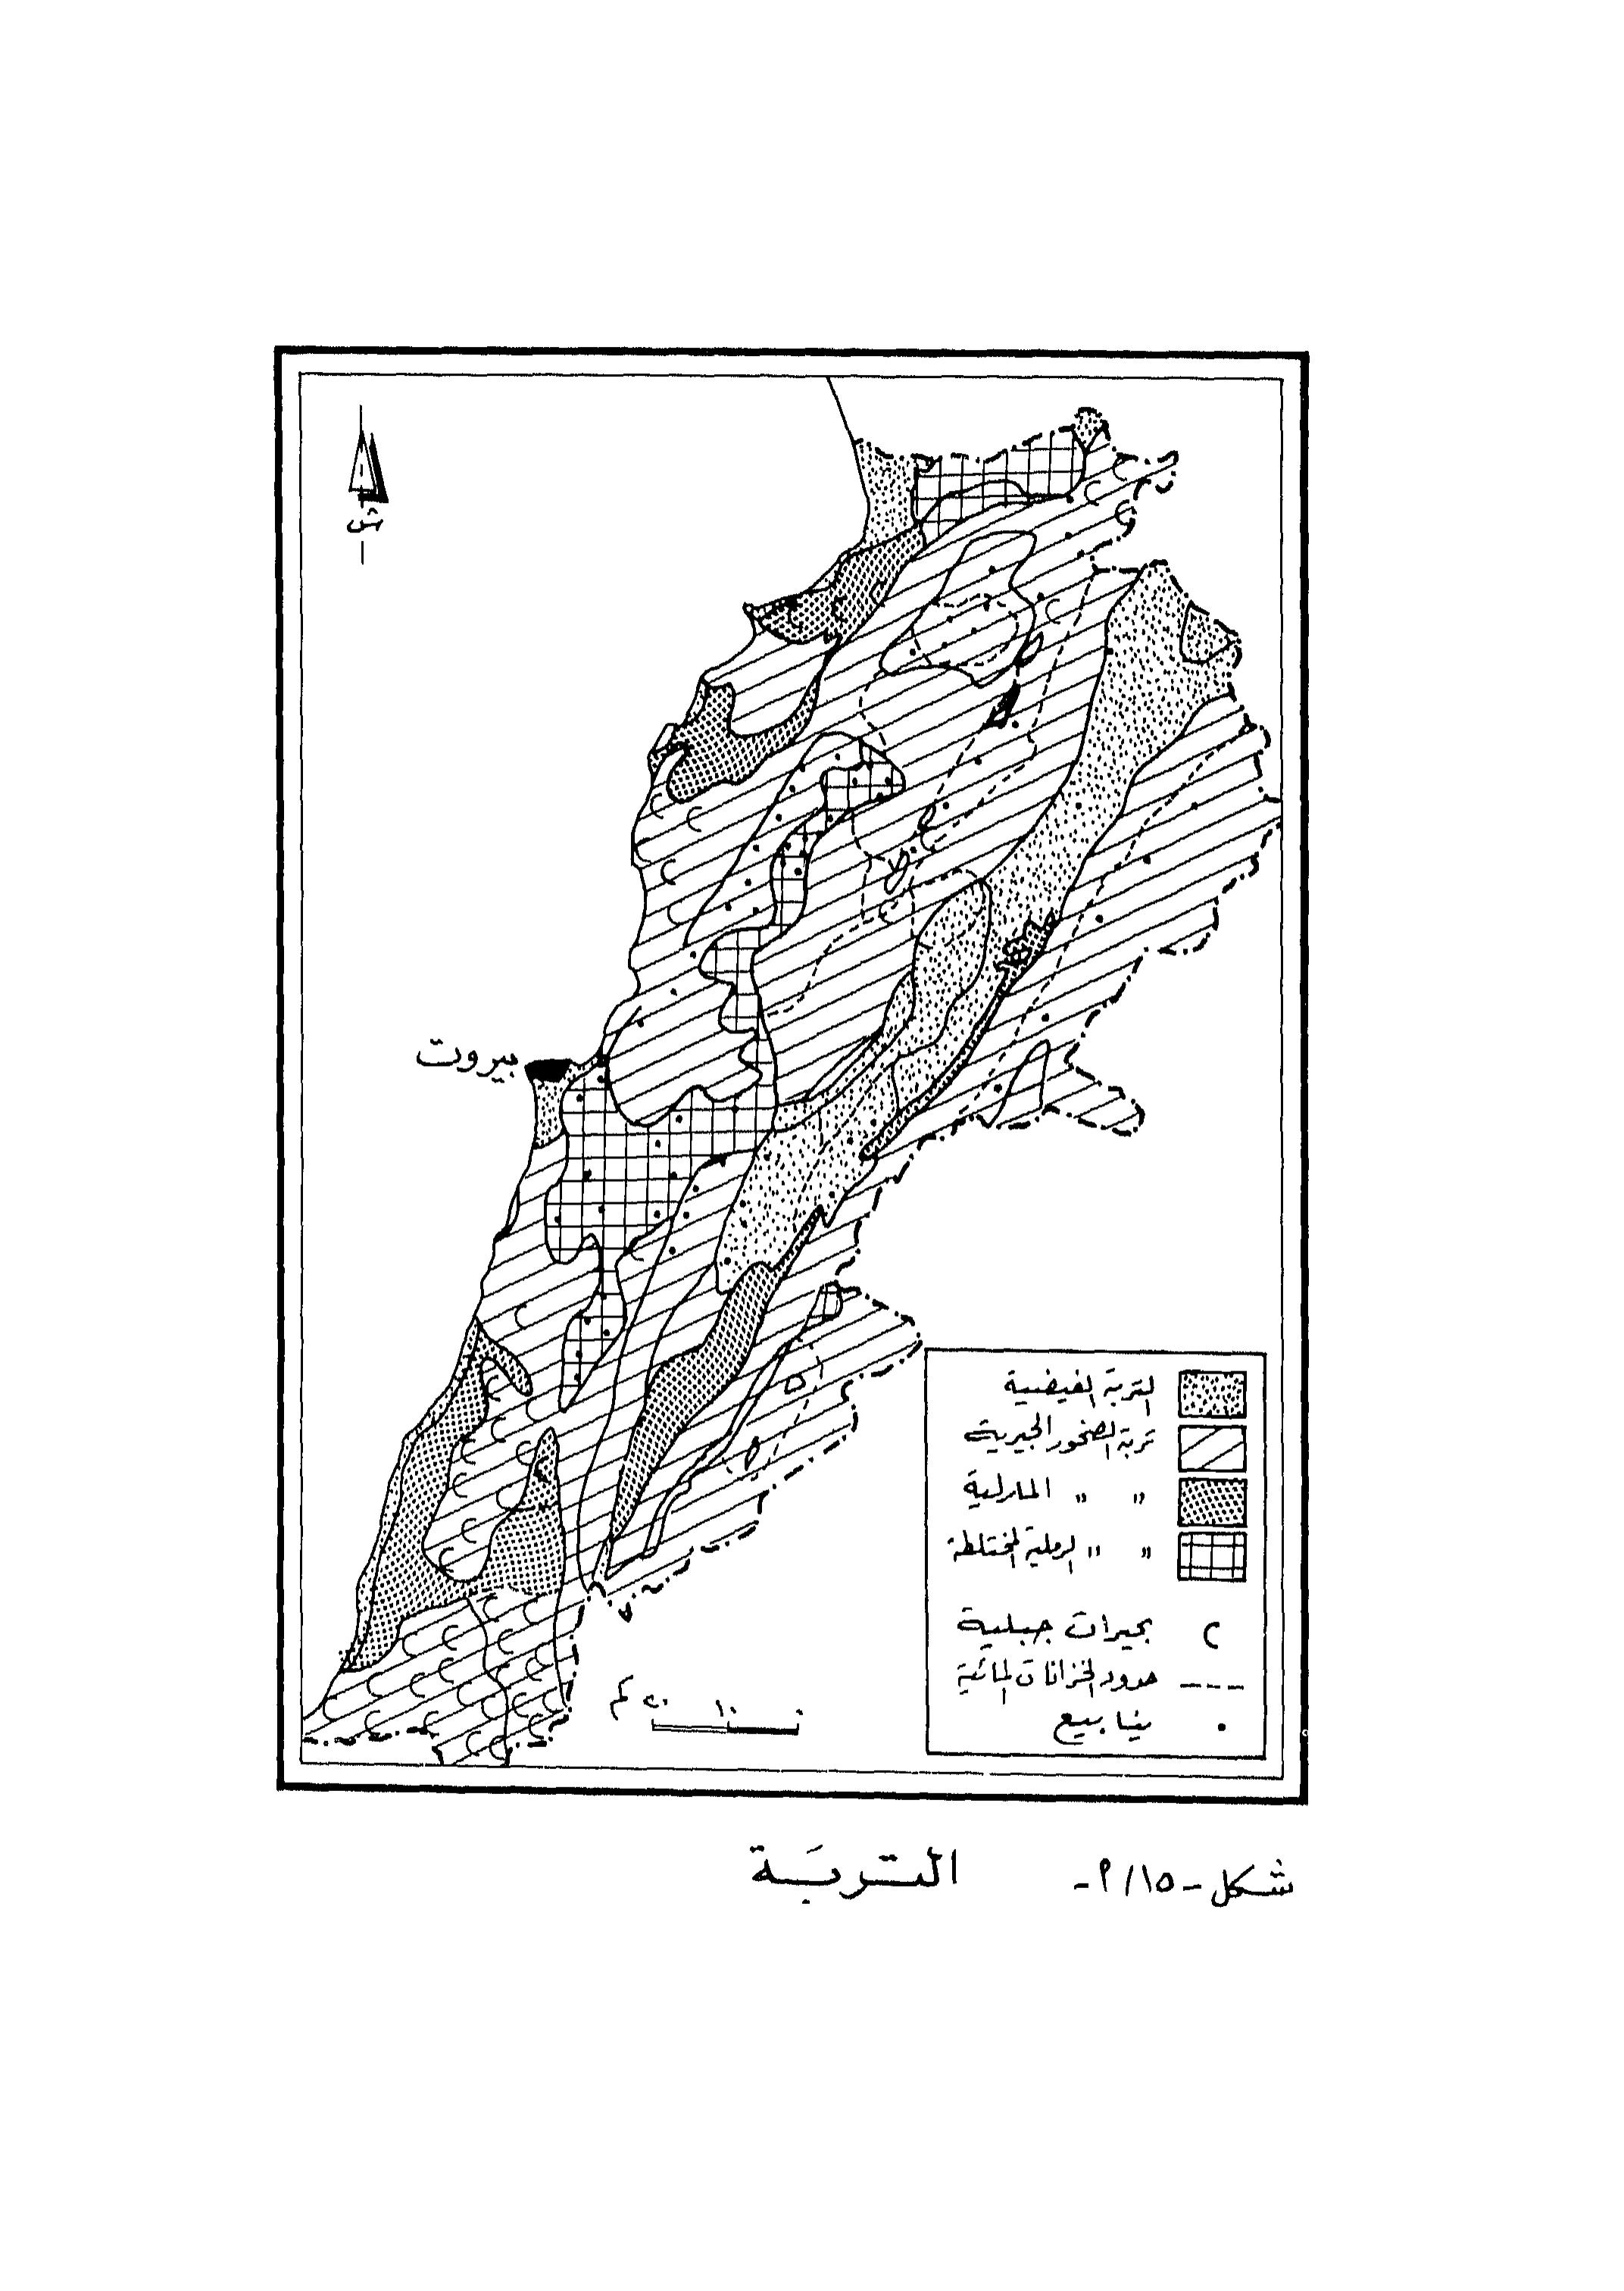 ش
بيروت
التربة الفيضية
تربة الصخور الجيرية
" " المارلية
" " الرملية المختلطة
بحيرات جبلية
حدود الخزانات المائية
ينابيع
٠ ١٠ ٢٠ كم
شكل -١٥/٢- التربَة